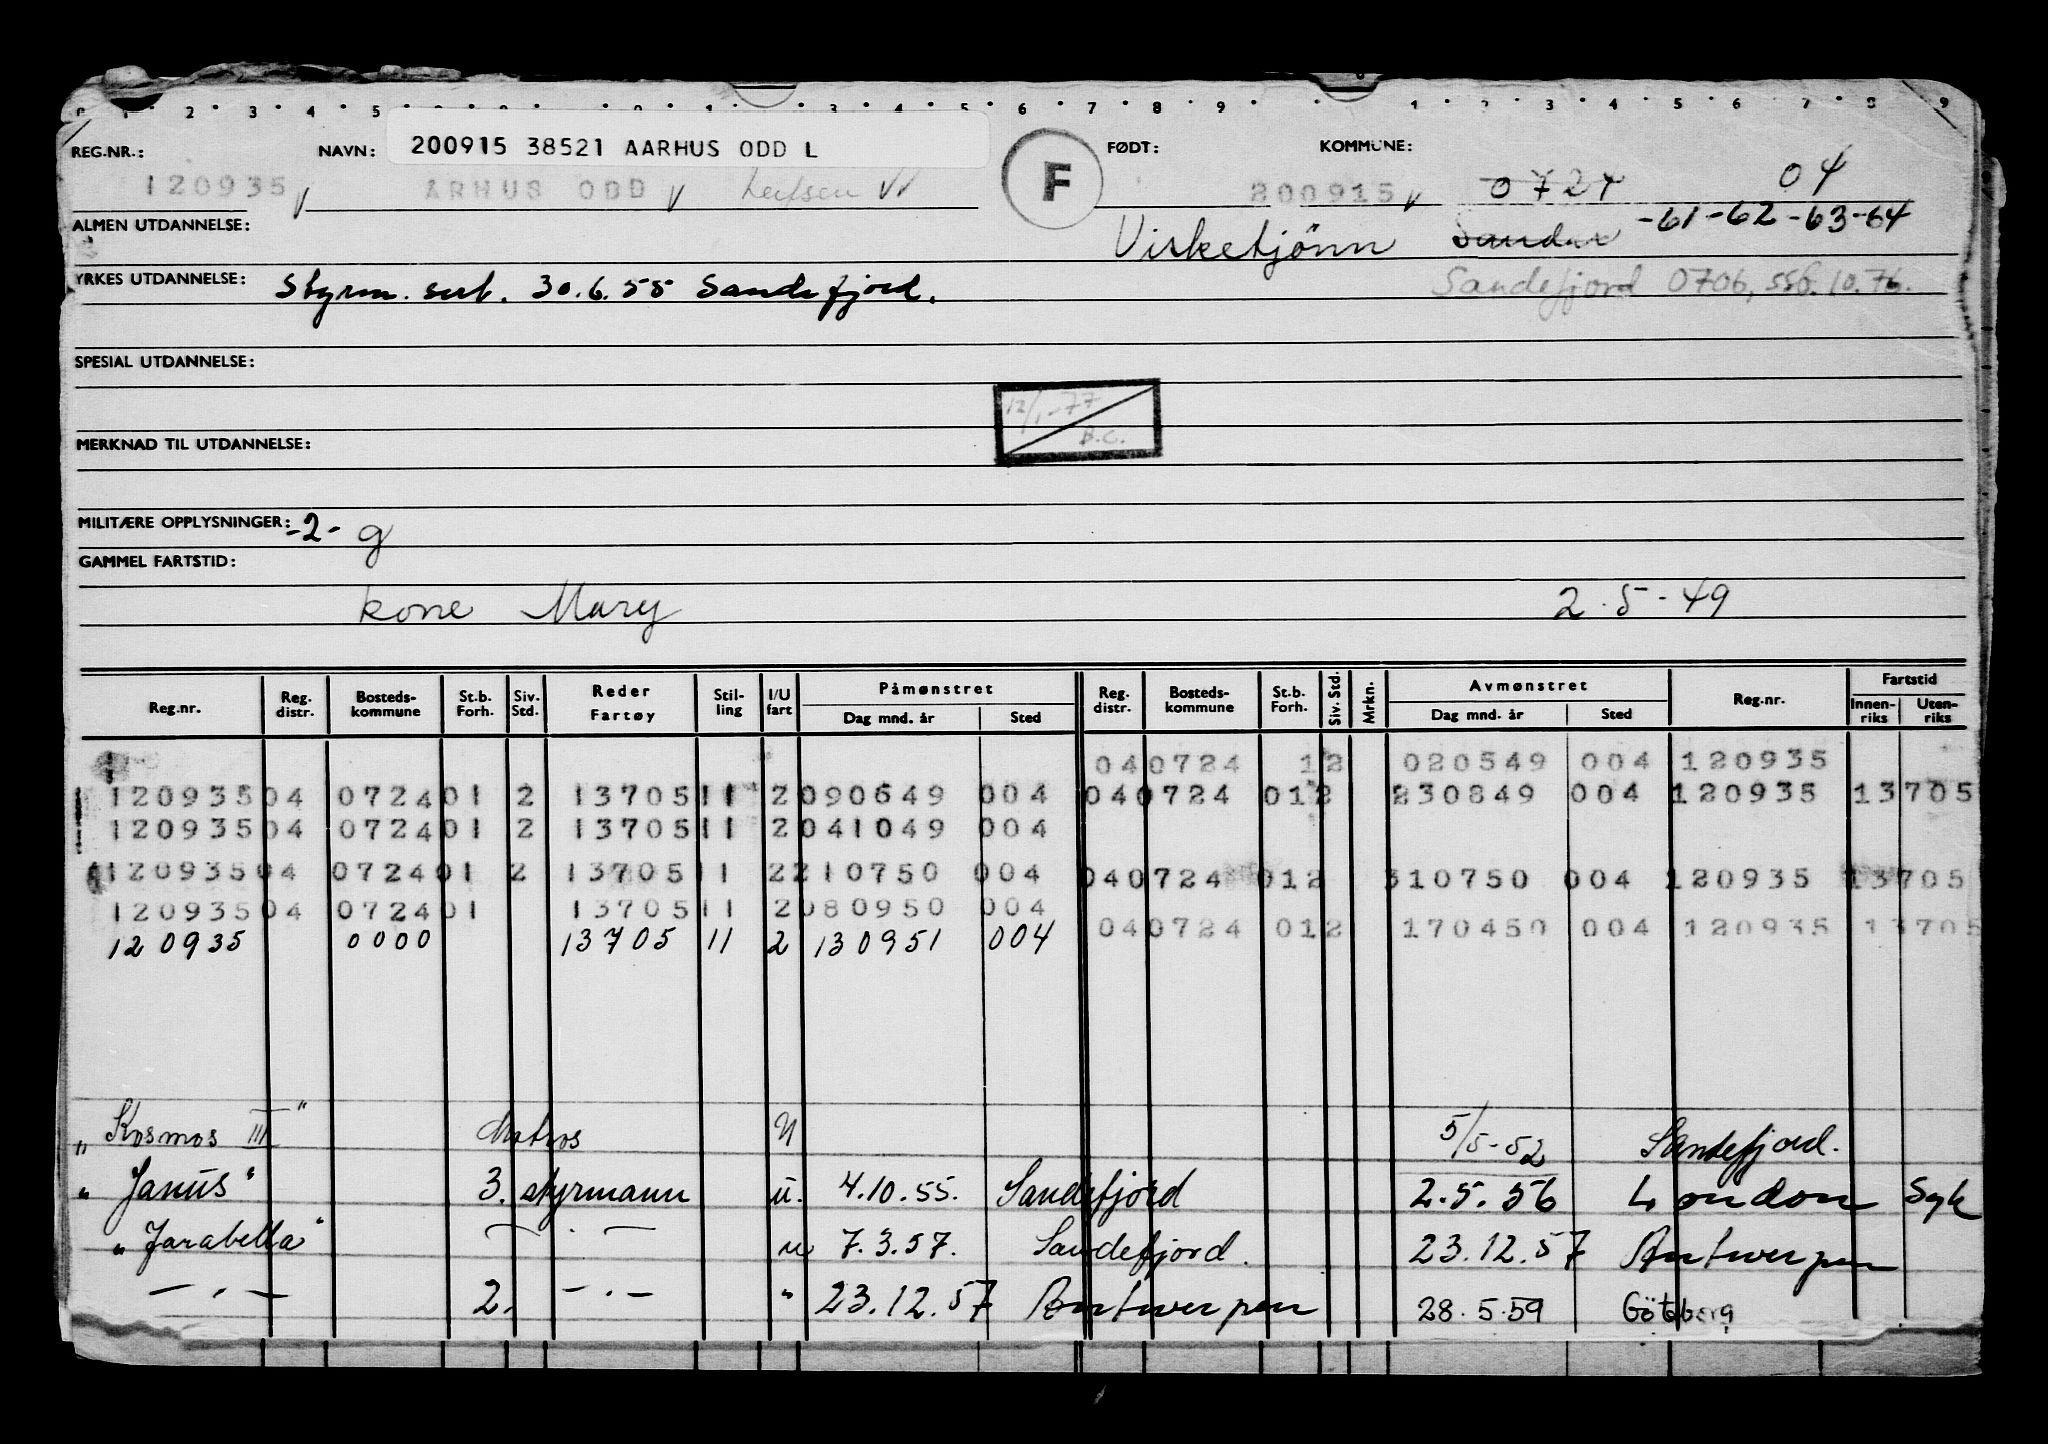 REG.NR.: NAVN: 200915 38521 AARHUS ODD L F FØDT: KOMMUNE:
120935 ÅRHUS ODD Leifsen 200915 0724 04
ALMEN UTDANNELSE: Virketjønn Sandar -61-62-63-64
YRKES UTDANNELSE: Styrm. sert. 30.6.55 Sandefjord. Sandefjord 0706, 10.76.
SPESIAL UTDANNELSE:
12/1-77
B.C.
MERKNAD TIL UTDANNELSE:
MILITÆRE OPPLYSNINGER: -2- g
GAMMEL FARTSTID:
kone Mary 2.5-49
Reg.nr. Reg. distr. Bosteds-kommune St.b. Forh. Siv. Std. Reder Fartøy Stil-ling I/U fart Påmønstret Dag mnd. år Sted Reg. distr. Bosteds-kommune St.b. Forh. Siv. Std. Mrkn. Avmønstret Dag mnd. år Sted Reg.nr. Fartstid Innen-riks Uten-riks
040724 12 020549 004 120935
120935 04 0724 01 2 13705 11 2 090649 004 040724 012 230849 004 120935 13705
120935 04 0724 01 2 13705 11 2 041049 004
120935 04 0724 01 2 13705 11 2 210750 004 040724 012 310750 004 120935 13705
120935 04 0724 01 13705 11 2 080950 004
040724 012 170450 004 120935 13705
120935 0000 13705 11 2 130951 004
"Kosmos III" Matros U 5/5-52 Sandefjord.
"Janus" 3. styrmann u. 4.10.55. Sandefjord 2.5.56 London Syk
"Jarabella" — . — u 7.3.57. Sandefjord. 23.12.57 Antwerpen
— . — 2. — . — " 23.12.57 Antwerpen 28.5.59 Göteborg